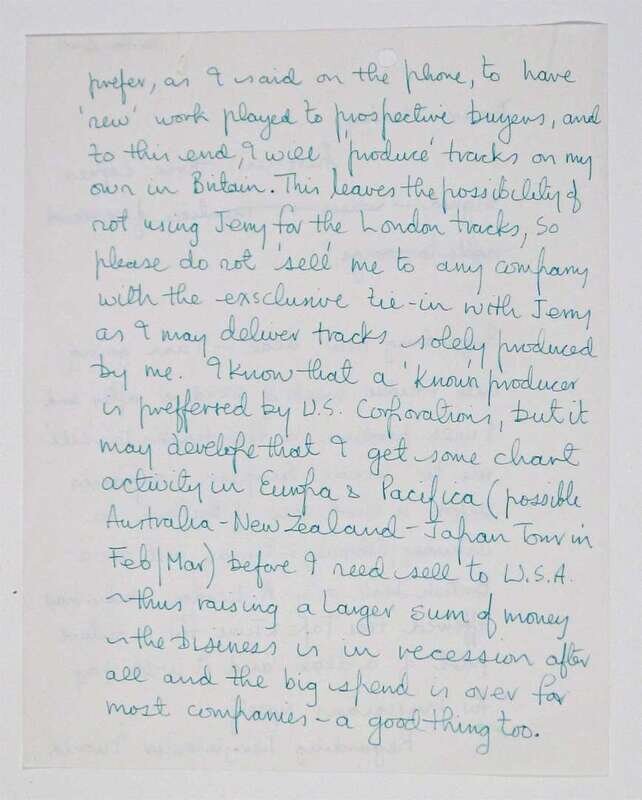 prefer, as I said on the phone, to have
'new' work played to prospective buyers, and
to this end, I will 'produce' tracks on my
own in Britain. This leaves the possibility of
not using Jerry for the London tracks, so
please do not 'sell' me to any company
with the exsclusive tie-in with Jerry
as I may deliver tracks solely produced
by me. I know that a 'known' producer
is prefferred by U.S. Corporations, but it
may develope that I get some chart
activity in Europa & Pacifica (possible
Australia - New Zealand - Japan Tour in
Feb/Mar) before I need sell to U.S.A.
~thus raising a larger sum of money
~the bisiness is in recession after
all and the big spend is over for
most companies - a good thing too.